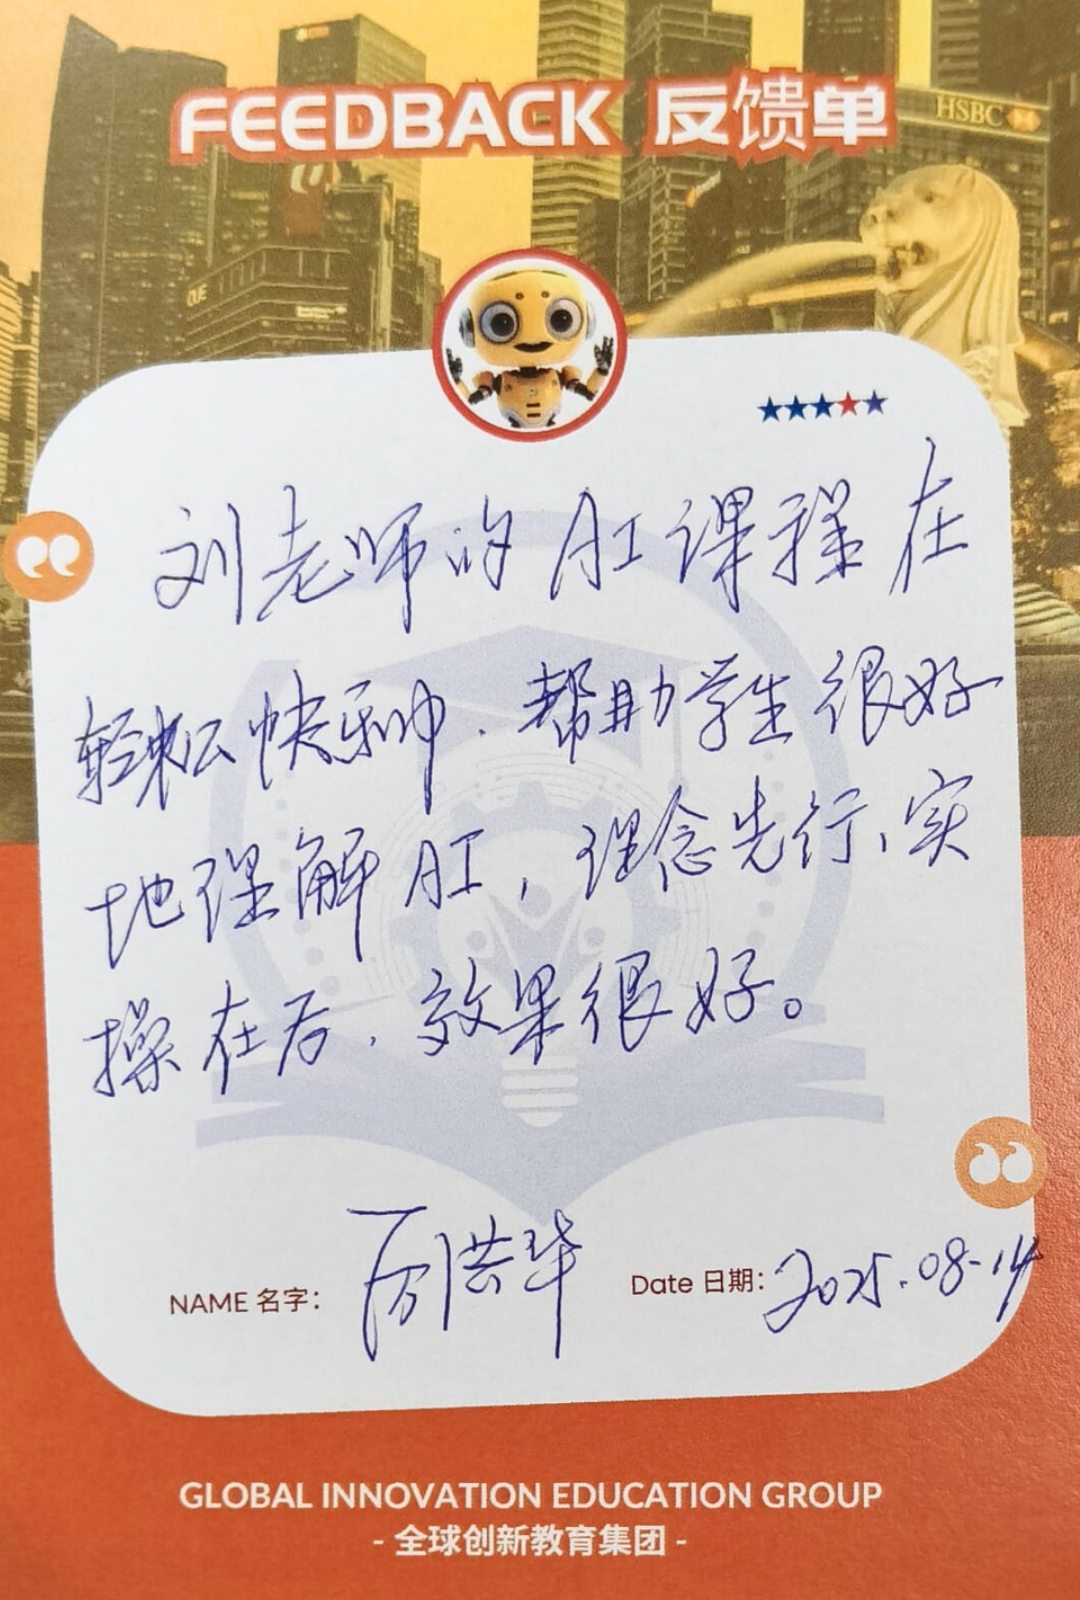 FEEDBACK 反馈单
HSBC
刘老师的AI课程在
轻松快乐中.帮助学生很好
地理解AI,理念先行、实
操在后.效果很好。
NAME 名字: 厉洪华
Date 日期: 2025.08-14
GLOBAL INNOVATION EDUCATION GROUP
- 全球创新教育集团 -